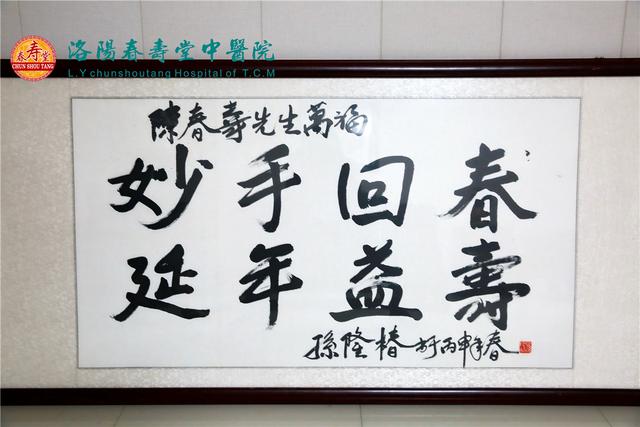 春壽堂
CHUN SHOU TANG
洛陽春壽堂中醫院
L.Y chunshoutang Hospital of T.C.M
陳春壽先生萬福
妙手回春
延年益壽
孫隆椿 於丙申年春